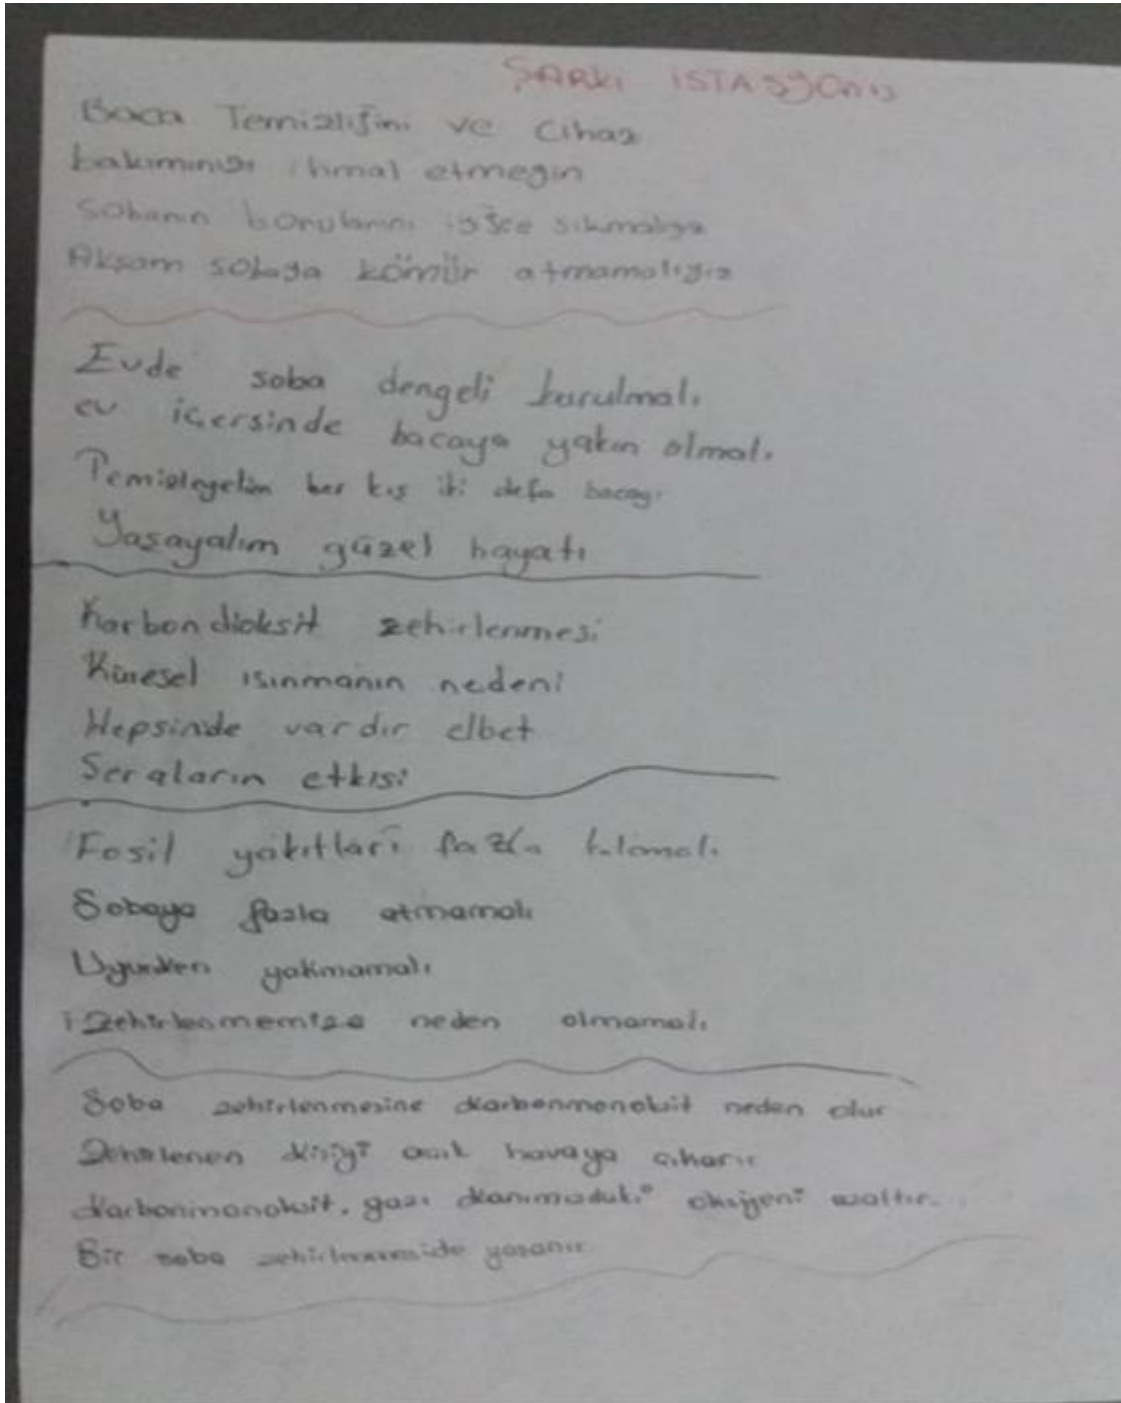 ŞARKI İSTASYONU
Baca Temizliğini ve Cihaz
bakımınızı ihmal etmeyin
Sobanın borularını iyice sıkmalıyız
Akşam sobaya kömür atmamalıyız
Evde soba dengeli kurulmalı
ev içersinde bacaya yakın olmalı
Temizleyelim her kış iki defa bacayı
Yaşayalım güzel hayatı
Karbondioksit zehirlenmesi
Küresel ısınmanın nedeni
Hepsinde vardır elbet
Seraların etkisi
Fosil yakıtları fazla
Sobaya fazla atmamalı
Uyurken yakmamalı
Zehirlenmemize neden olmamalı
Soba zehirlenmesine karbonmonoksit neden olur
Zehirlenen kişiyi açık havaya çıkarır
Karbonmonoksit gazı kanımızdaki oksijeni azaltır.
Bir soba yaşanır